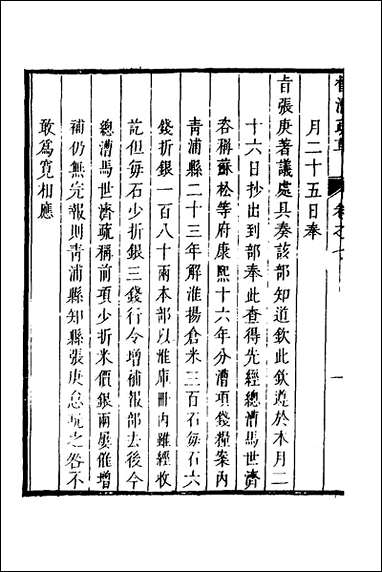 督漕疏草 卷之七 一
月二十五日奉
旨張庚著議處具奏該部知道欽此欽遵於本月二
十六日抄出到部奉此查得先經總漕馬世濟
咨稱蘇松等府康熙十六年分漕項錢糧案內
青浦縣二十三年解淮揚倉米三百石每石六
錢折銀一百八十兩本部以淮庫冊內雖經收
訖但每石少折銀三錢行令增補報部去後今
總漕馬世濟疏稱前項少折米價銀兩屢催增
補仍無完報則青浦縣知縣張庚怠玩之咎不
敢為寬相應